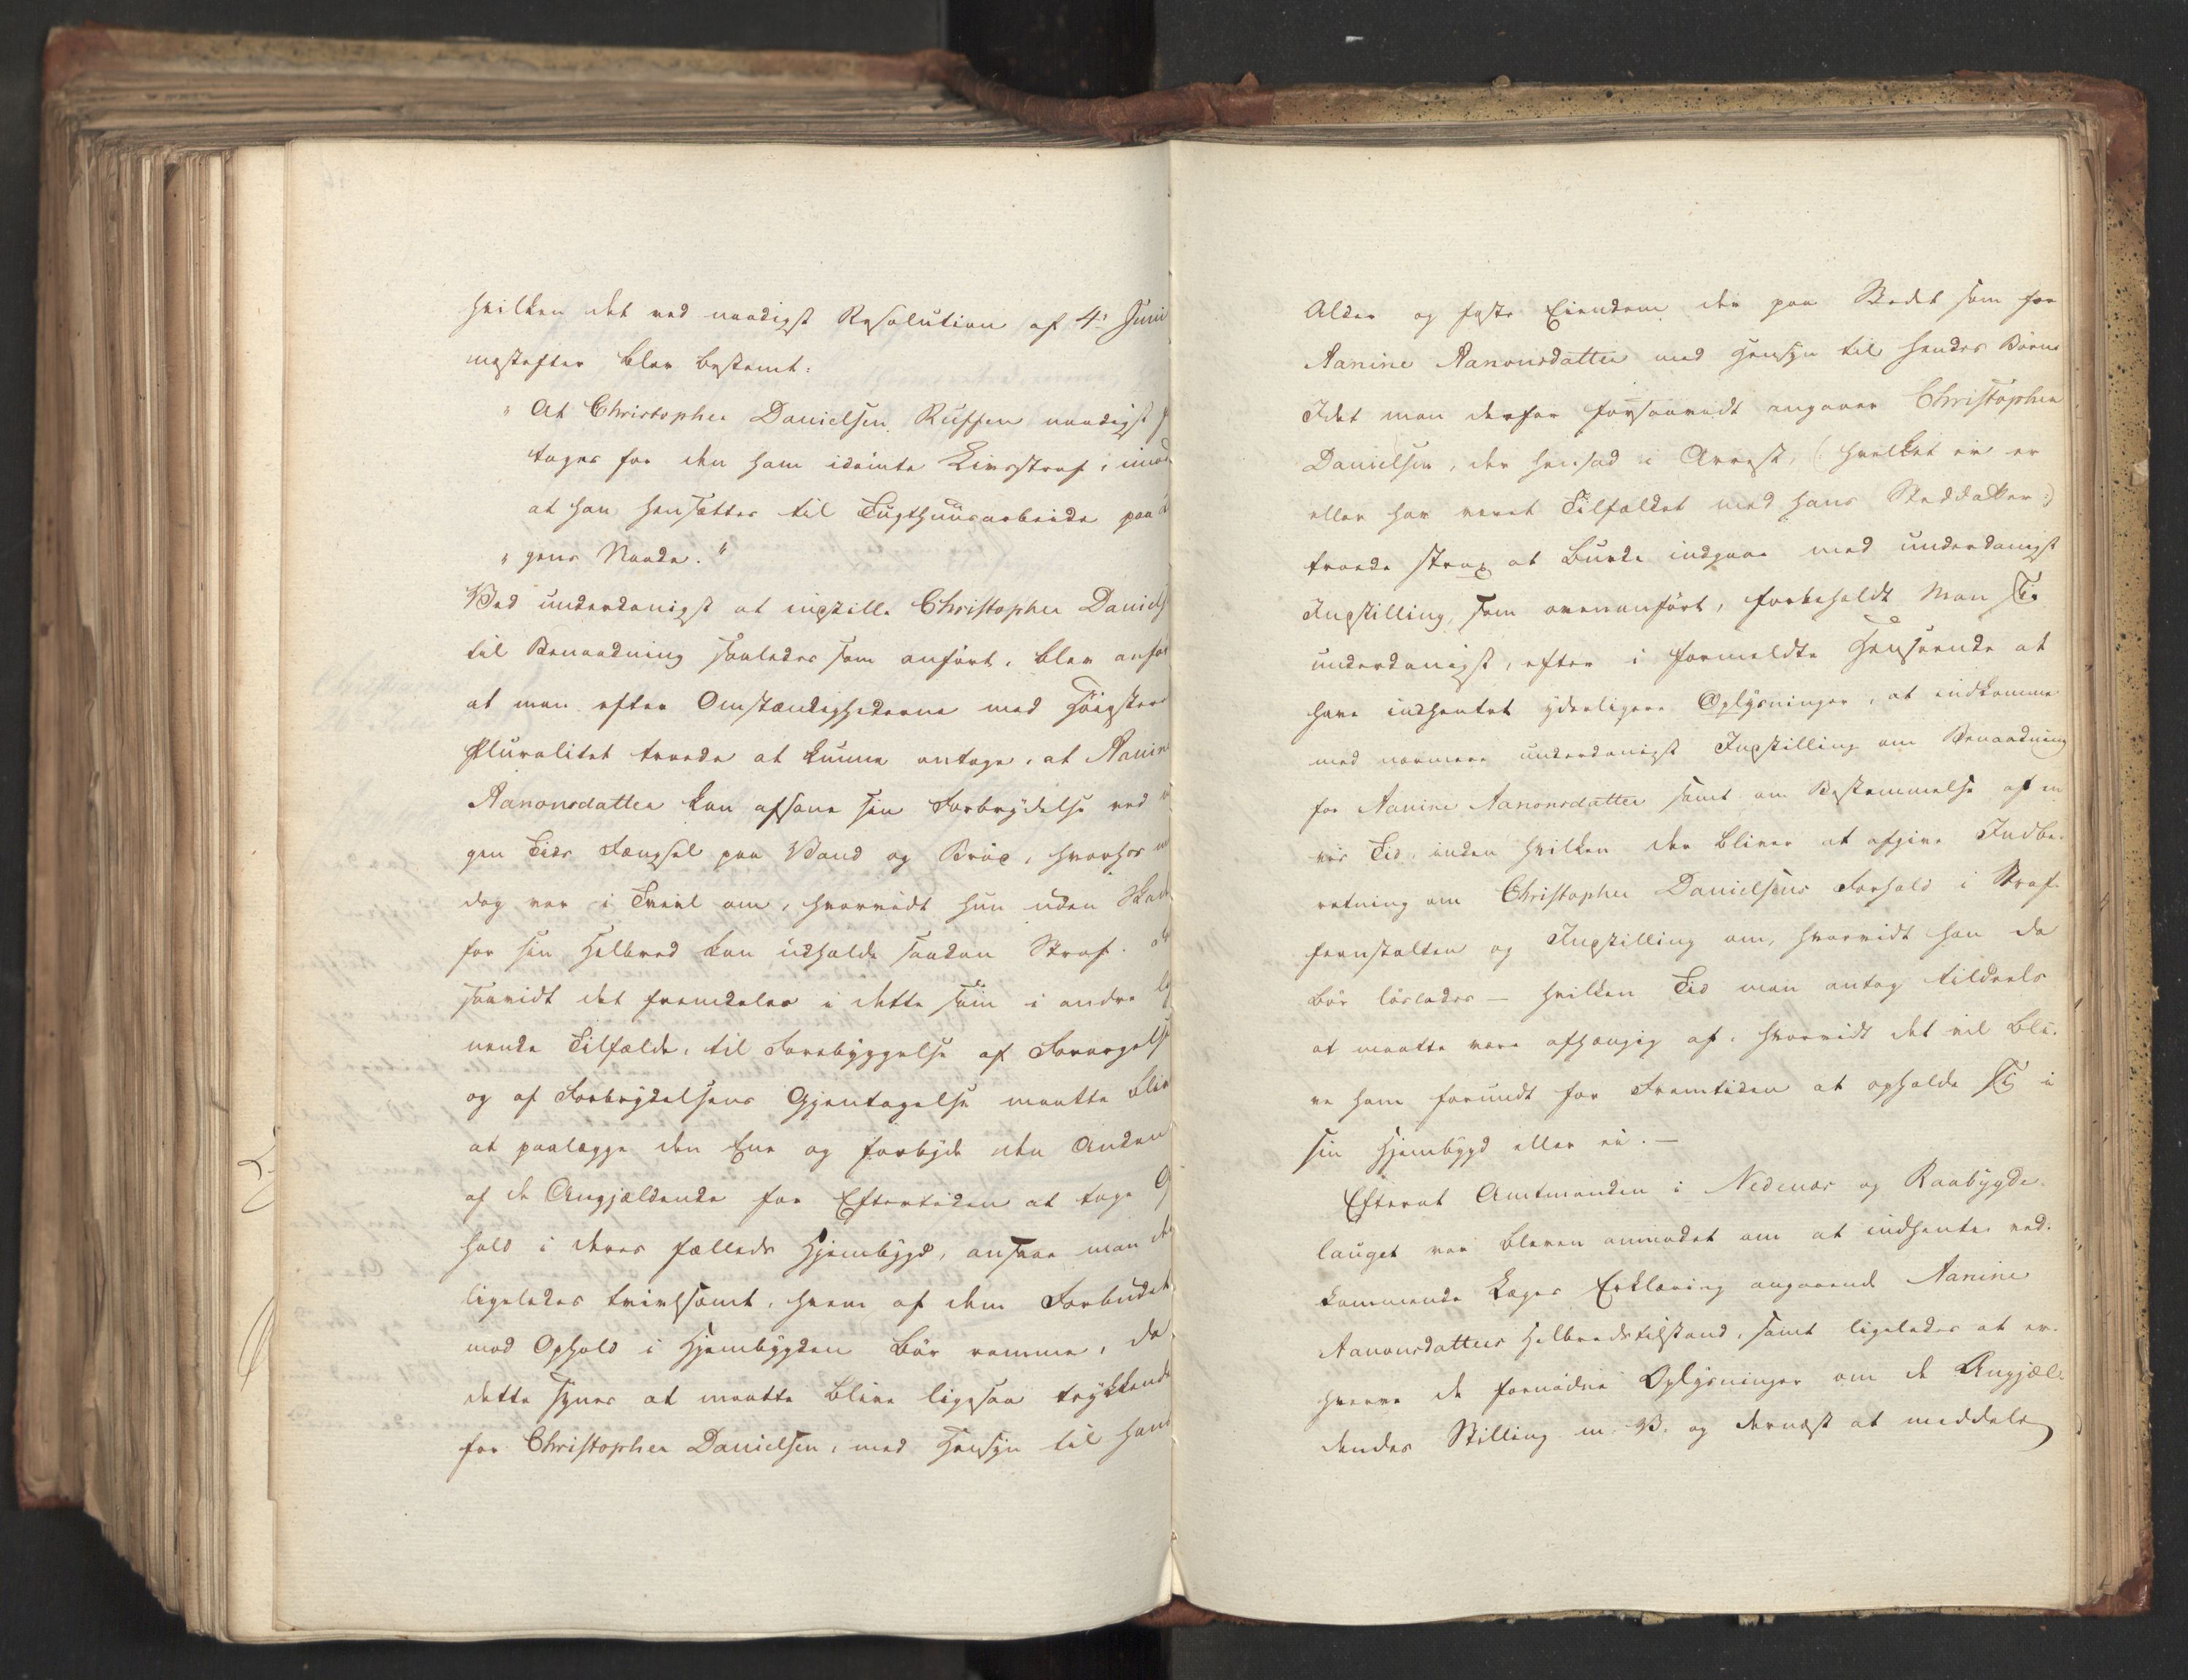 hvilken det ved naadigst Resolution af 4de Juni
næstefter blev bestemt:
"At Christopher Danielsen Ruffen naadigst
tages for den ham idømte Livsstraf, imod
at han hensættes til Tugthuusarbeide paa
"gens Naade."
Ved underdanigst at instille Christopher Daniels
til Benaadning saaledes som anført, blev anfør
at man efter Omstændighederne med Høiesterets
Pluralitet troede at kunne antage, at Aanine
Aanonsdatter kan afsone sin Forbrydelse ved
gen Tids Fængsel paa Vand og Brød, hvorhos
dog var i Tvivl om, hvorvidt hun uden Skade
for sin Helbred kan udholde saadan Straf.
saavidt det fremdeles i dette som i andre
nende Tilfælde, til Forebyggelse af Forargelse
og af Forbrydelsens Gjentagelse maatte bliv
at paalægge den Ene og forbyde den Anden
af de Angjældende for Eftertiden at tage O
hold i deres fælleds Hjembygd, ansaae man de
ligeledes tvivlsomt, hvem af dem Forbudet
mod Ophold i Hjembygden bør ramme, da
dette synes at maatte blive ligesaa trykkende
for Christopher Danielsen, med Hensyn til hans
Alder og faste Eiendom der paa Stedet som for
Aanine Aanonsdatter med Hensyn til hendes Børn
Idet man derfor forsaavidt angaaer Christopher
Danielsen, der hensad i Arrest, (: hvilket ei er
eller har været Tilfældet med hans Steddatter :)
troede strax at burde indgaae med underdanigst
Indstilling, som ovenanført, forbeholdt man sig
underdanigst, efter i formeldte Henseende at
have indhentet yderligere Oplysninger, at indkomme
med nærmere underdanigst Indstilling om Benaadning
for Aanine Aanonsdatter samt om Bestemmelse af en
vis Tid, inden hvilken der bliver at afgive Indbe-
retning om Christopher Danielsens Forhold i Straf-
feanstalten og Indstilling om, hvorvidt han da
bør løslades – hvilken Tid man antog tildeels
at maatte være afhængig af, hvorvidt det vil bli-
ve ham forundt for Fremtiden at opholde sig i
sin Hjembygd eller ei. –
Efterat Amtmanden i Nedenæs og Raabygde-
lauget var bleven anmodet om at indhente ved-
kommende Læges Erklæring angaaende Aanine
Aanonsdatters Helbredstilstand, samt ligeledes at er-
hverve de fornødne Oplysninger om de Angjæl-
dendes Stilling m. V. og dernæst at meddele